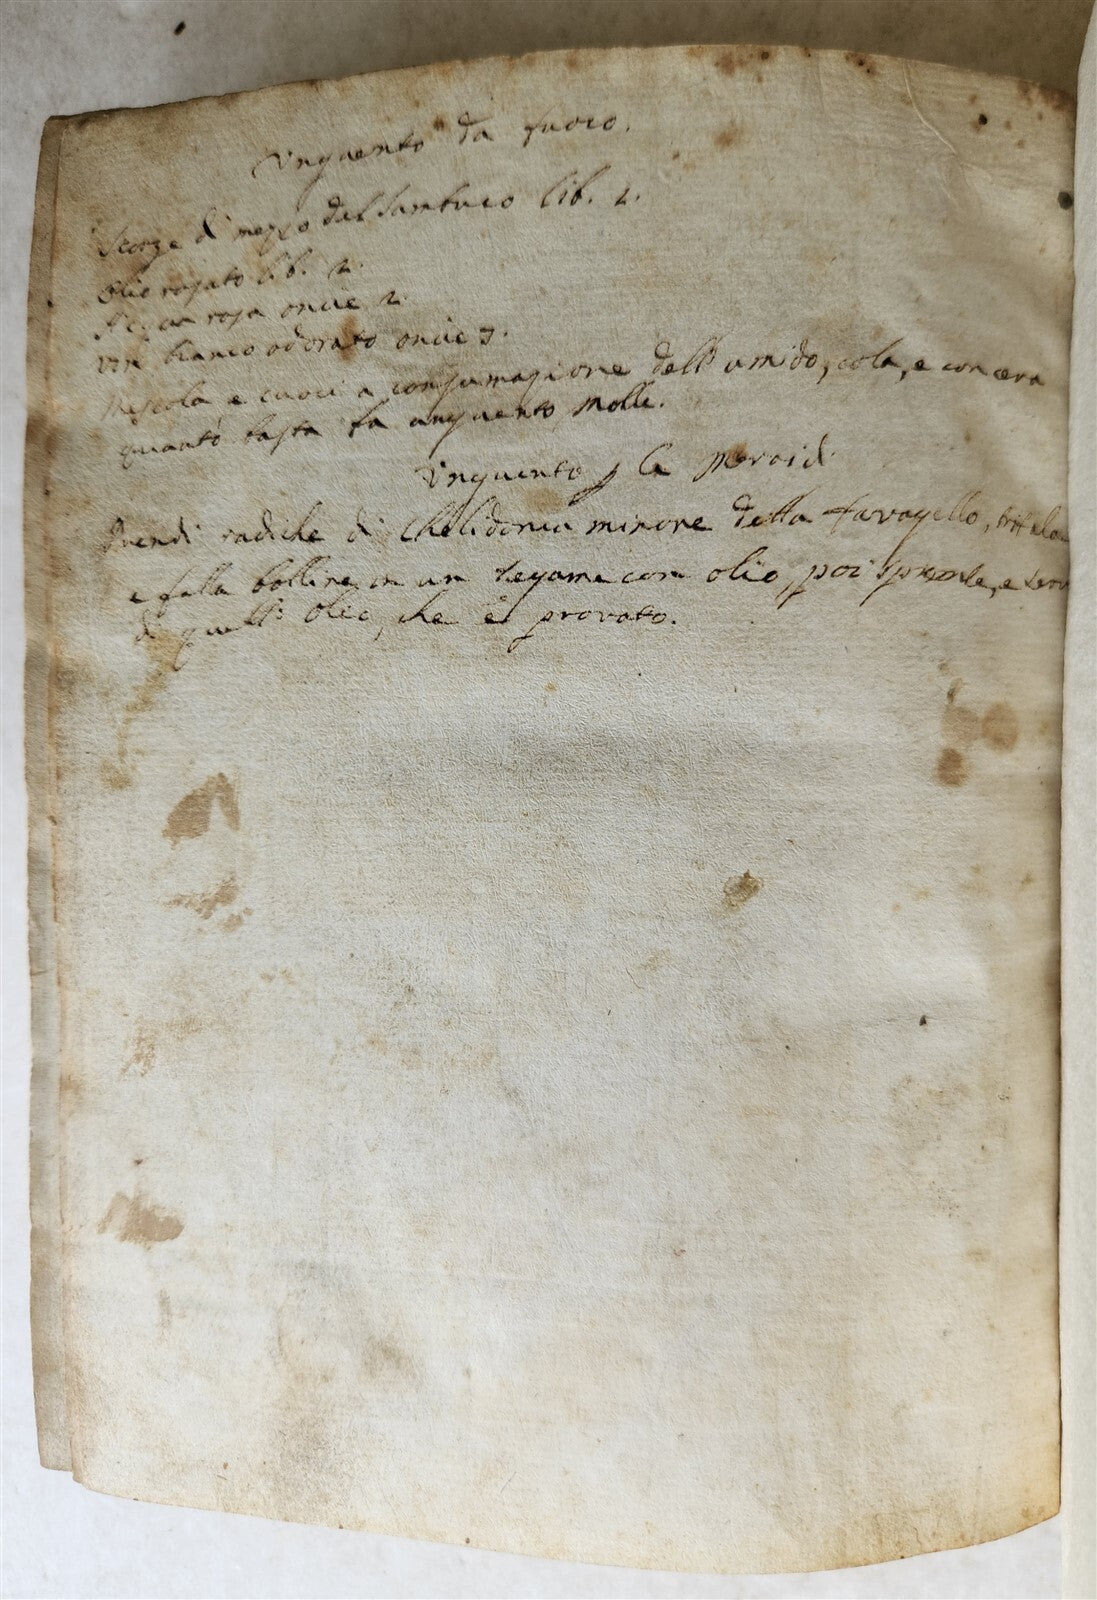 Unguento da fuoco.
Scorze di mezzo del Sambuco lib. 2.
Olio rosato lib. 2.
Acqua rosa oncie 2.
Vin bianco odorato oncie 3.
Mescola e cuoci a consumazione dell'umido, cola, e con cera
quanto basta fa unguento molle.
Unguento la moroidi
Prendi radiche di Chelidonia minore detta favagello, tritala
e falla bollire in un tegame con olio, poi spremle, e serv
di quell'olio, che è provato.